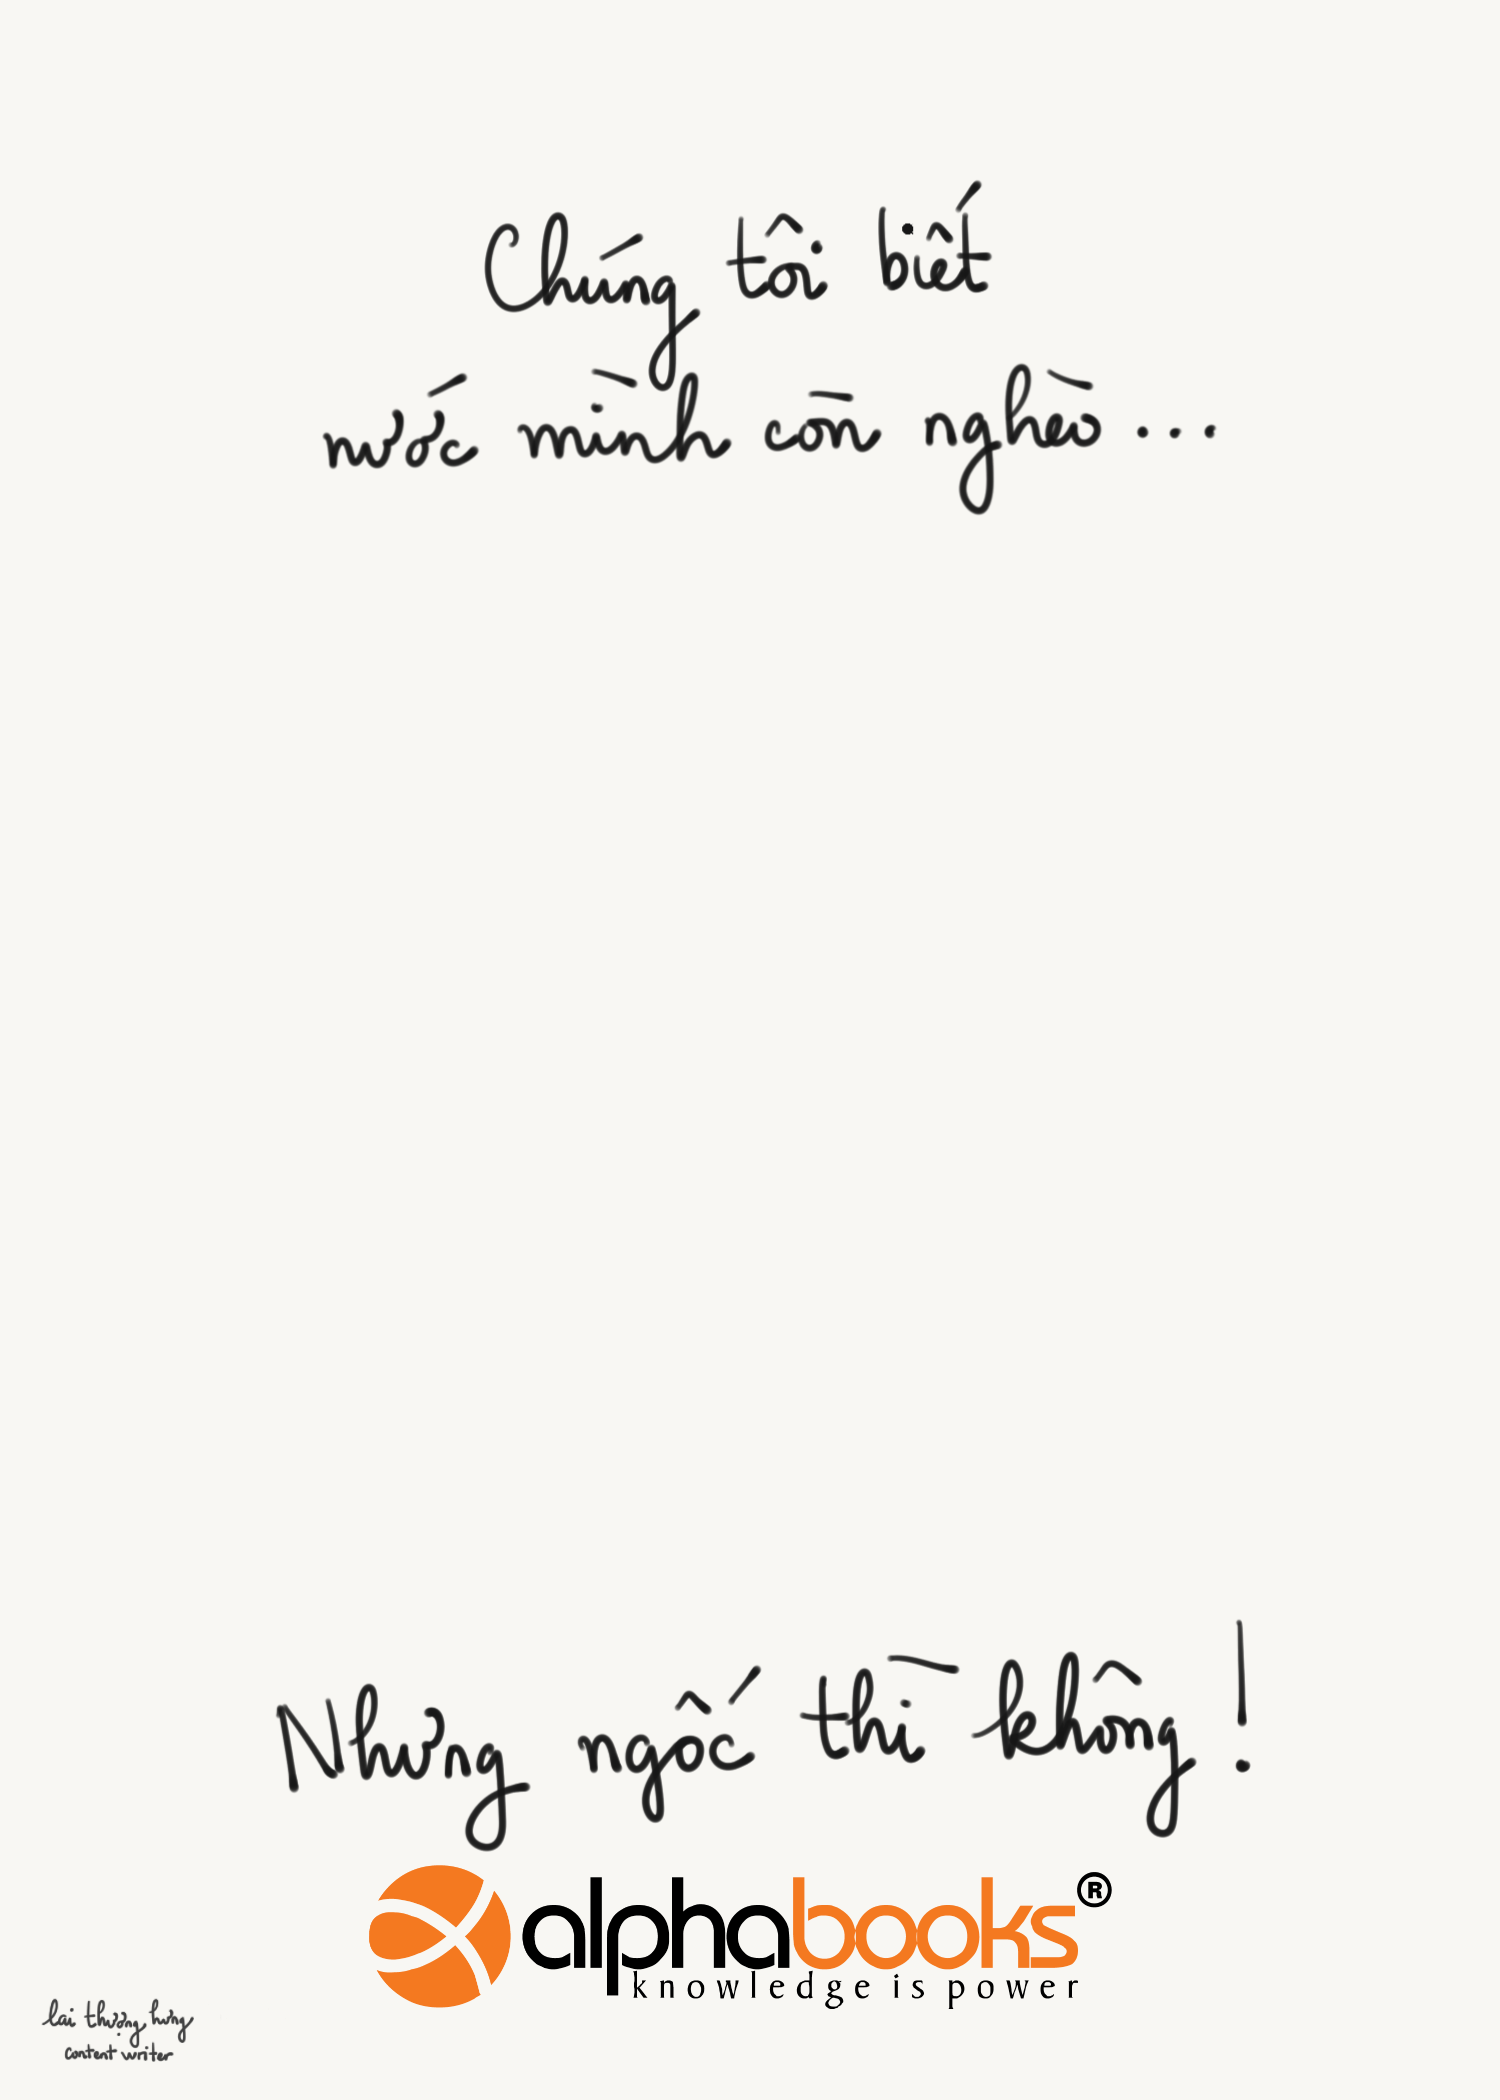 Chúng tôi biết
nước mình còn nghèo...
Nhưng ngốc thì không!
alphabooks®
knowledge is power
lai thượng hưng
content writer